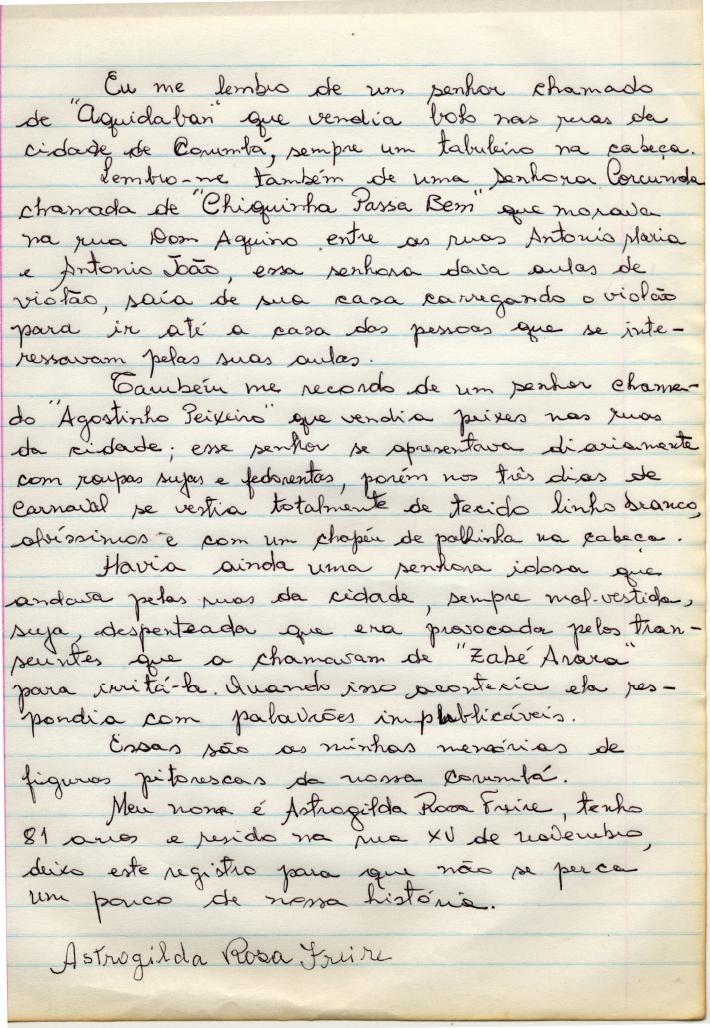 Eu me lembro de um senhor chamado
de "Aquidaban" que vendia bolo nas ruas da
cidade de Corumbá, sempre um tabuleiro na cabeça.
Lembro-me também de uma senhora Corcunda
chamada de "Chiquinha Passa Bem" que morava
na rua Dom Aquino entre as ruas Antonio Maria
e Antonio João, essa senhora dava aulas de
violão, saía de sua casa carregando o violão
para ir até a casa das pessoas que se inte-
ressavam pelas suas aulas.
Também me recordo de um senhor chama-
do "Agostinho Peixeiro" que vendia peixes nas ruas
da cidade; esse senhor se apresentava diariamente
com roupas sujas e fedorentas, porém nos três dias de
Carnaval se vestia totalmente de tecido linho branco,
alvíssimos e com um chapéu de palhinha na cabeça.
Havia ainda uma senhora idosa que
andava pelas ruas da cidade, sempre mal-vestida,
suja, despenteada que era provocada pelos tran-
seuntes que a chamavam de "Zabé Arara"
para irritá-la. Quando isso acontecia ela res-
pondia com palavrões impublicáveis.
Essas são as minhas memórias de
figuras pitorescas da nossa Corumbá.
Meu nome é Astrogilda Rosa Freire, tenho
81 anos e resido na rua XV de novembro,
deixo este registro para que não se perca
um pouco de nossa história.
Astrogilda Rosa Freire